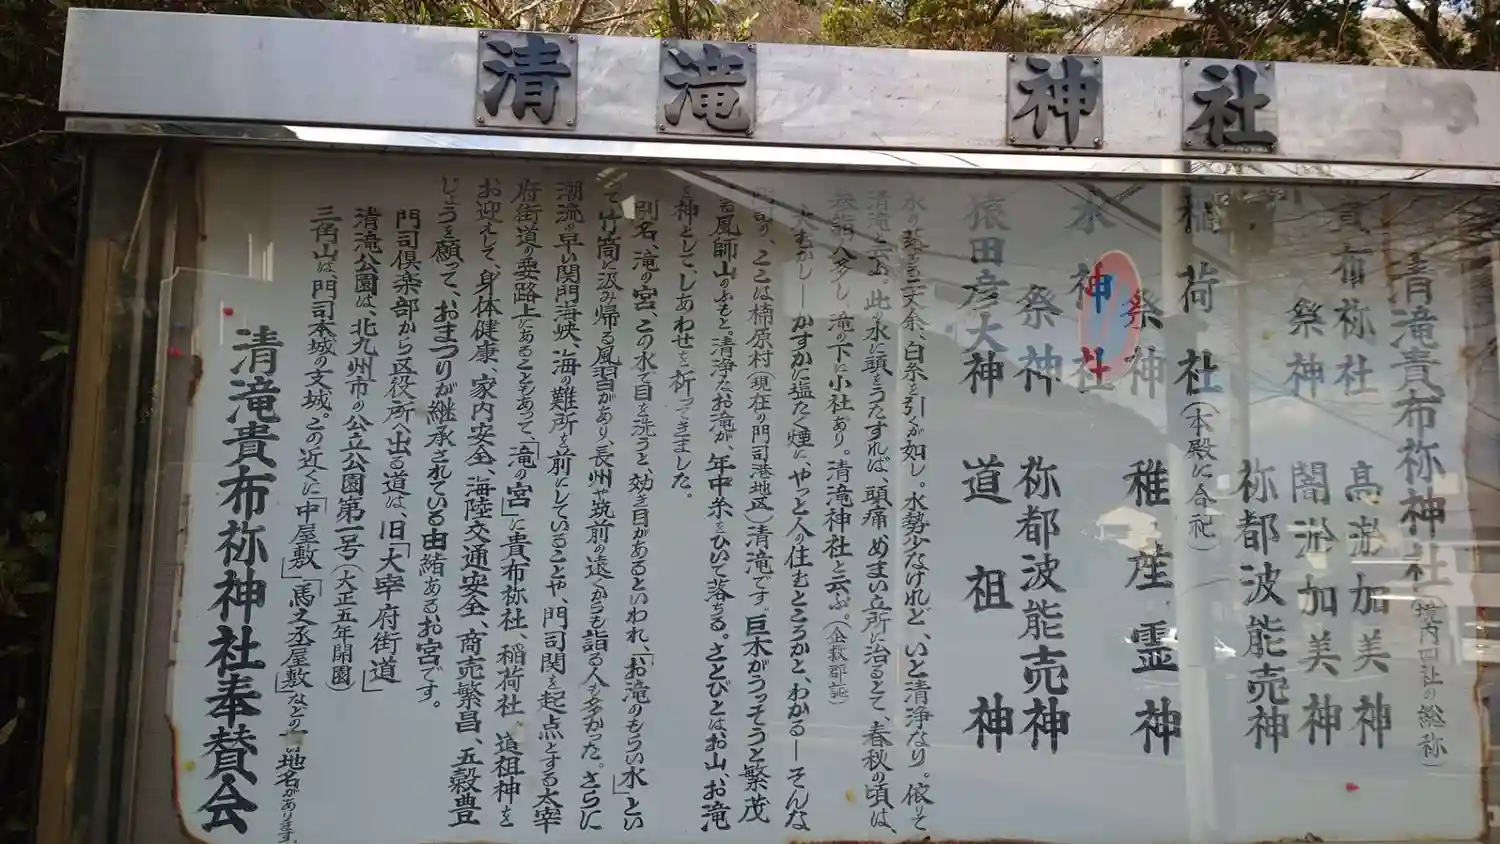 清滝神社
清滝貴布祢神社(境内四社の総称)
貴布祢社 高淤加美神
祭神 闇淤加美神
祢都波能売神
稲荷社(本殿に合祀)
祭神 稚産霊神
水神社
祭神 祢都波能売神
猿田彦大神 道祖神
水の落る三丈余、白糸を引くが如し。水勢少なけれど、いと清浄なり。依りて
清滝と云ふ。此の水に頭をうたすれば、頭痛、めまい立所に治るとて、春秋の頃は、
参詣人多し、滝の下に小社あり。清滝神社と云ふ。(企救郡誌)
むかし―かすかに塩たく煙に、やっと人の住むところかと、わかる―そんな
門司、ここは楠原村(現在の門司港地区)清滝です。巨木がうっそうと繁茂
する風師山のふもと。清浄なお滝が、年中糸をひいて落ちる。さとびとはお山、お滝
を神として、しあわせを祈ってきました。
別名、滝の宮、この水で目を洗うと、効き目があるといわれ、「お滝のもらい水」とい
って竹筒に汲み帰る風習があり、長州や筑前の遠くからも詣る人も多かった。さらに
潮流の早い関門海峡、海の難所を前にしていることや、門司関を起点とする太宰
府街道の要路上にあることもあって、「滝の宮」に貴布祢社、稲荷社、道祖神を
お迎えして、身体健康、家内安全、海陸交通安全、商売繁昌、五穀豊
じょうを願って、おまつりが継承されている由緒あるお宮です。
門司倶楽部から区役所へ出る道は、旧「大宰府街道」
清滝公園は、北九州市の公立公園第一号(大正五年開園)
三角山は、門司本城の支城。この近くに「中屋敷」「馬之丞屋敷」などの 地名があります。
清滝貴布祢神社奉賛会